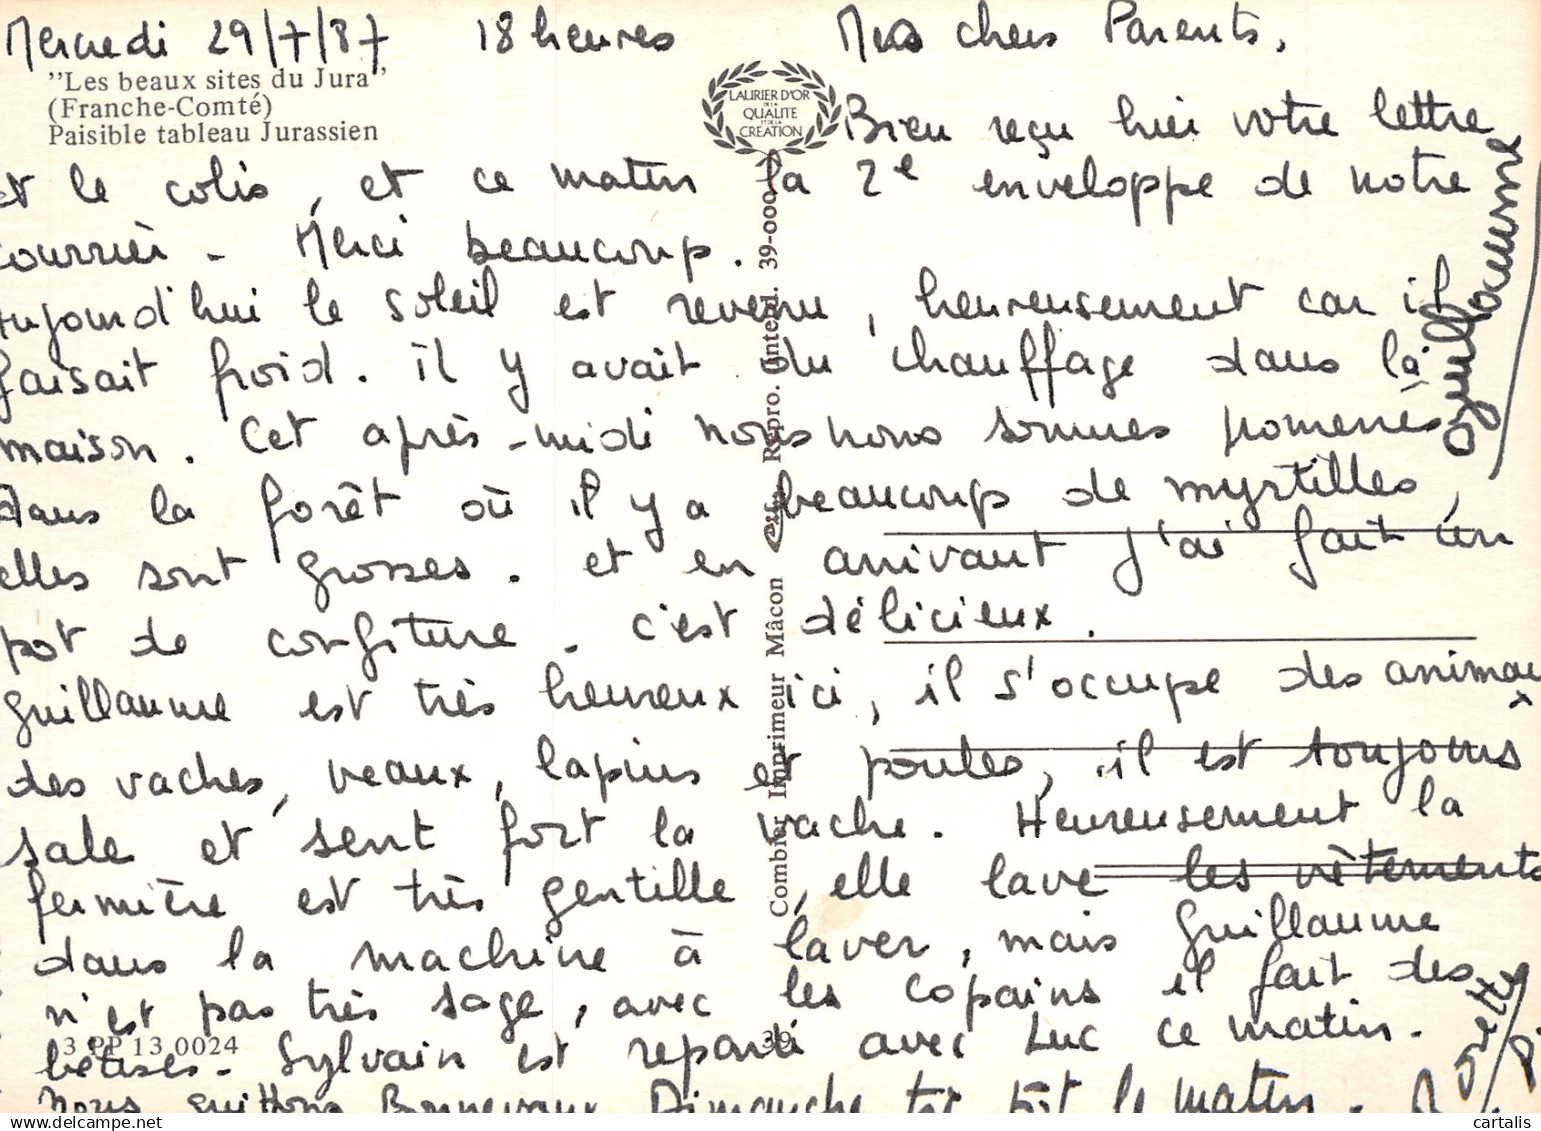 Mercredi 29/7/87 18 heures Mes chers Parents,
"Les beaux sites du Jura"
(Franche-Comté)
Paisible tableau Jurassien
LAURIER D'OR
DE LA
QUALITE
ET DE LA
CREATION
Bien reçu hier votre lettre
et le colis, et ce matin la 2e enveloppe de notre
courrier - Merci beaucoup.
Aujourd'hui le soleil est revenu, heureusement car il
faisait froid. il y avait du chauffage dans la
maison. Cet après-midi nous nous sommes promenés
dans la forêt où il y a beaucoup de myrtilles,
elles sont grosses. et en arrivant j'ai fait un
pot de confiture - c'est délicieux.
Guillaume est très heureux ici, il s'occupe des animaux
des vaches, veaux, lapins et poules, il est toujours
sale et sent fort la vache. Heureusement la
fermière est très gentille, elle lave les vêtements
dans la machine à laver, mais Guillaume
n'est pas très sage, avec les copains il fait des
bêtises - Sylvain est reparti avec Luc ce matin.
Nous quittons Bonnevaux Dimanche tôt le matin.
guillaume
Combier Imprimeur Mâcon
Repro. interd. 39-000
3 PP 13 0024
39
cartalis